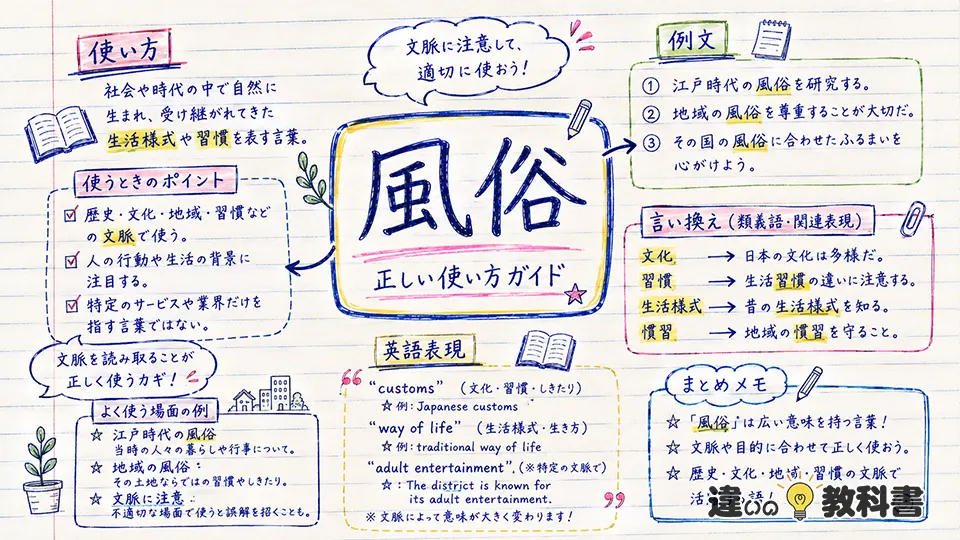 使い方
社会や時代の中で自然に
生まれ、受け継がれてきた
生活様式や習慣を表す言葉。
使うときのポイント
歴史・文化・地域・習慣など
の文脈で使う。
人の行動や生活の背景に
注目する。
特定のサービスや業界だけを
指す言葉ではない。
文脈を読み取ることが
正しく使うカギ！
よく使う場面の例
☆ 江戸時代の風俗
当時の人々の暮らしや行事について。
☆ 地域の風俗：
その土地ならではの習慣やしきたり。
☆ 文脈に注意：
不適切な場面で使うと誤解を招くことも。
文脈に注意して、
適切に使おう！
風俗
正しい使い方ガイド
英語表現
"customs" （文化・習慣・しきたり）
☆例：Japanese customs
"way of life" （生活様式・生き方）
☆例：traditional way of life
"adult entertainment"，（※特定の文脈で）
☆：The district is known for
its adult entertainment.
※文脈によって意味が大きく変わります！
例文
① 江戸時代の風俗を研究する。
② 地域の風俗を尊重することが大切だ。
③ その国の風俗に合わせたふるまいを
心がけよう。
言い換え（類義語・関連表現）
文化 → 日本の文化は多様だ。
習慣 → 生活習慣の違いに注意する。
生活様式 → 昔の生活様式を知る。
慣習 → 地域の慣習を守ること。
まとめメモ
☆「風俗」は広い意味を持つ言葉！
☆ 文脈や目的に合わせて正しく使おう。
☆ 歴史・文化・地域・習慣の文脈で
活 語！
違いの教科書